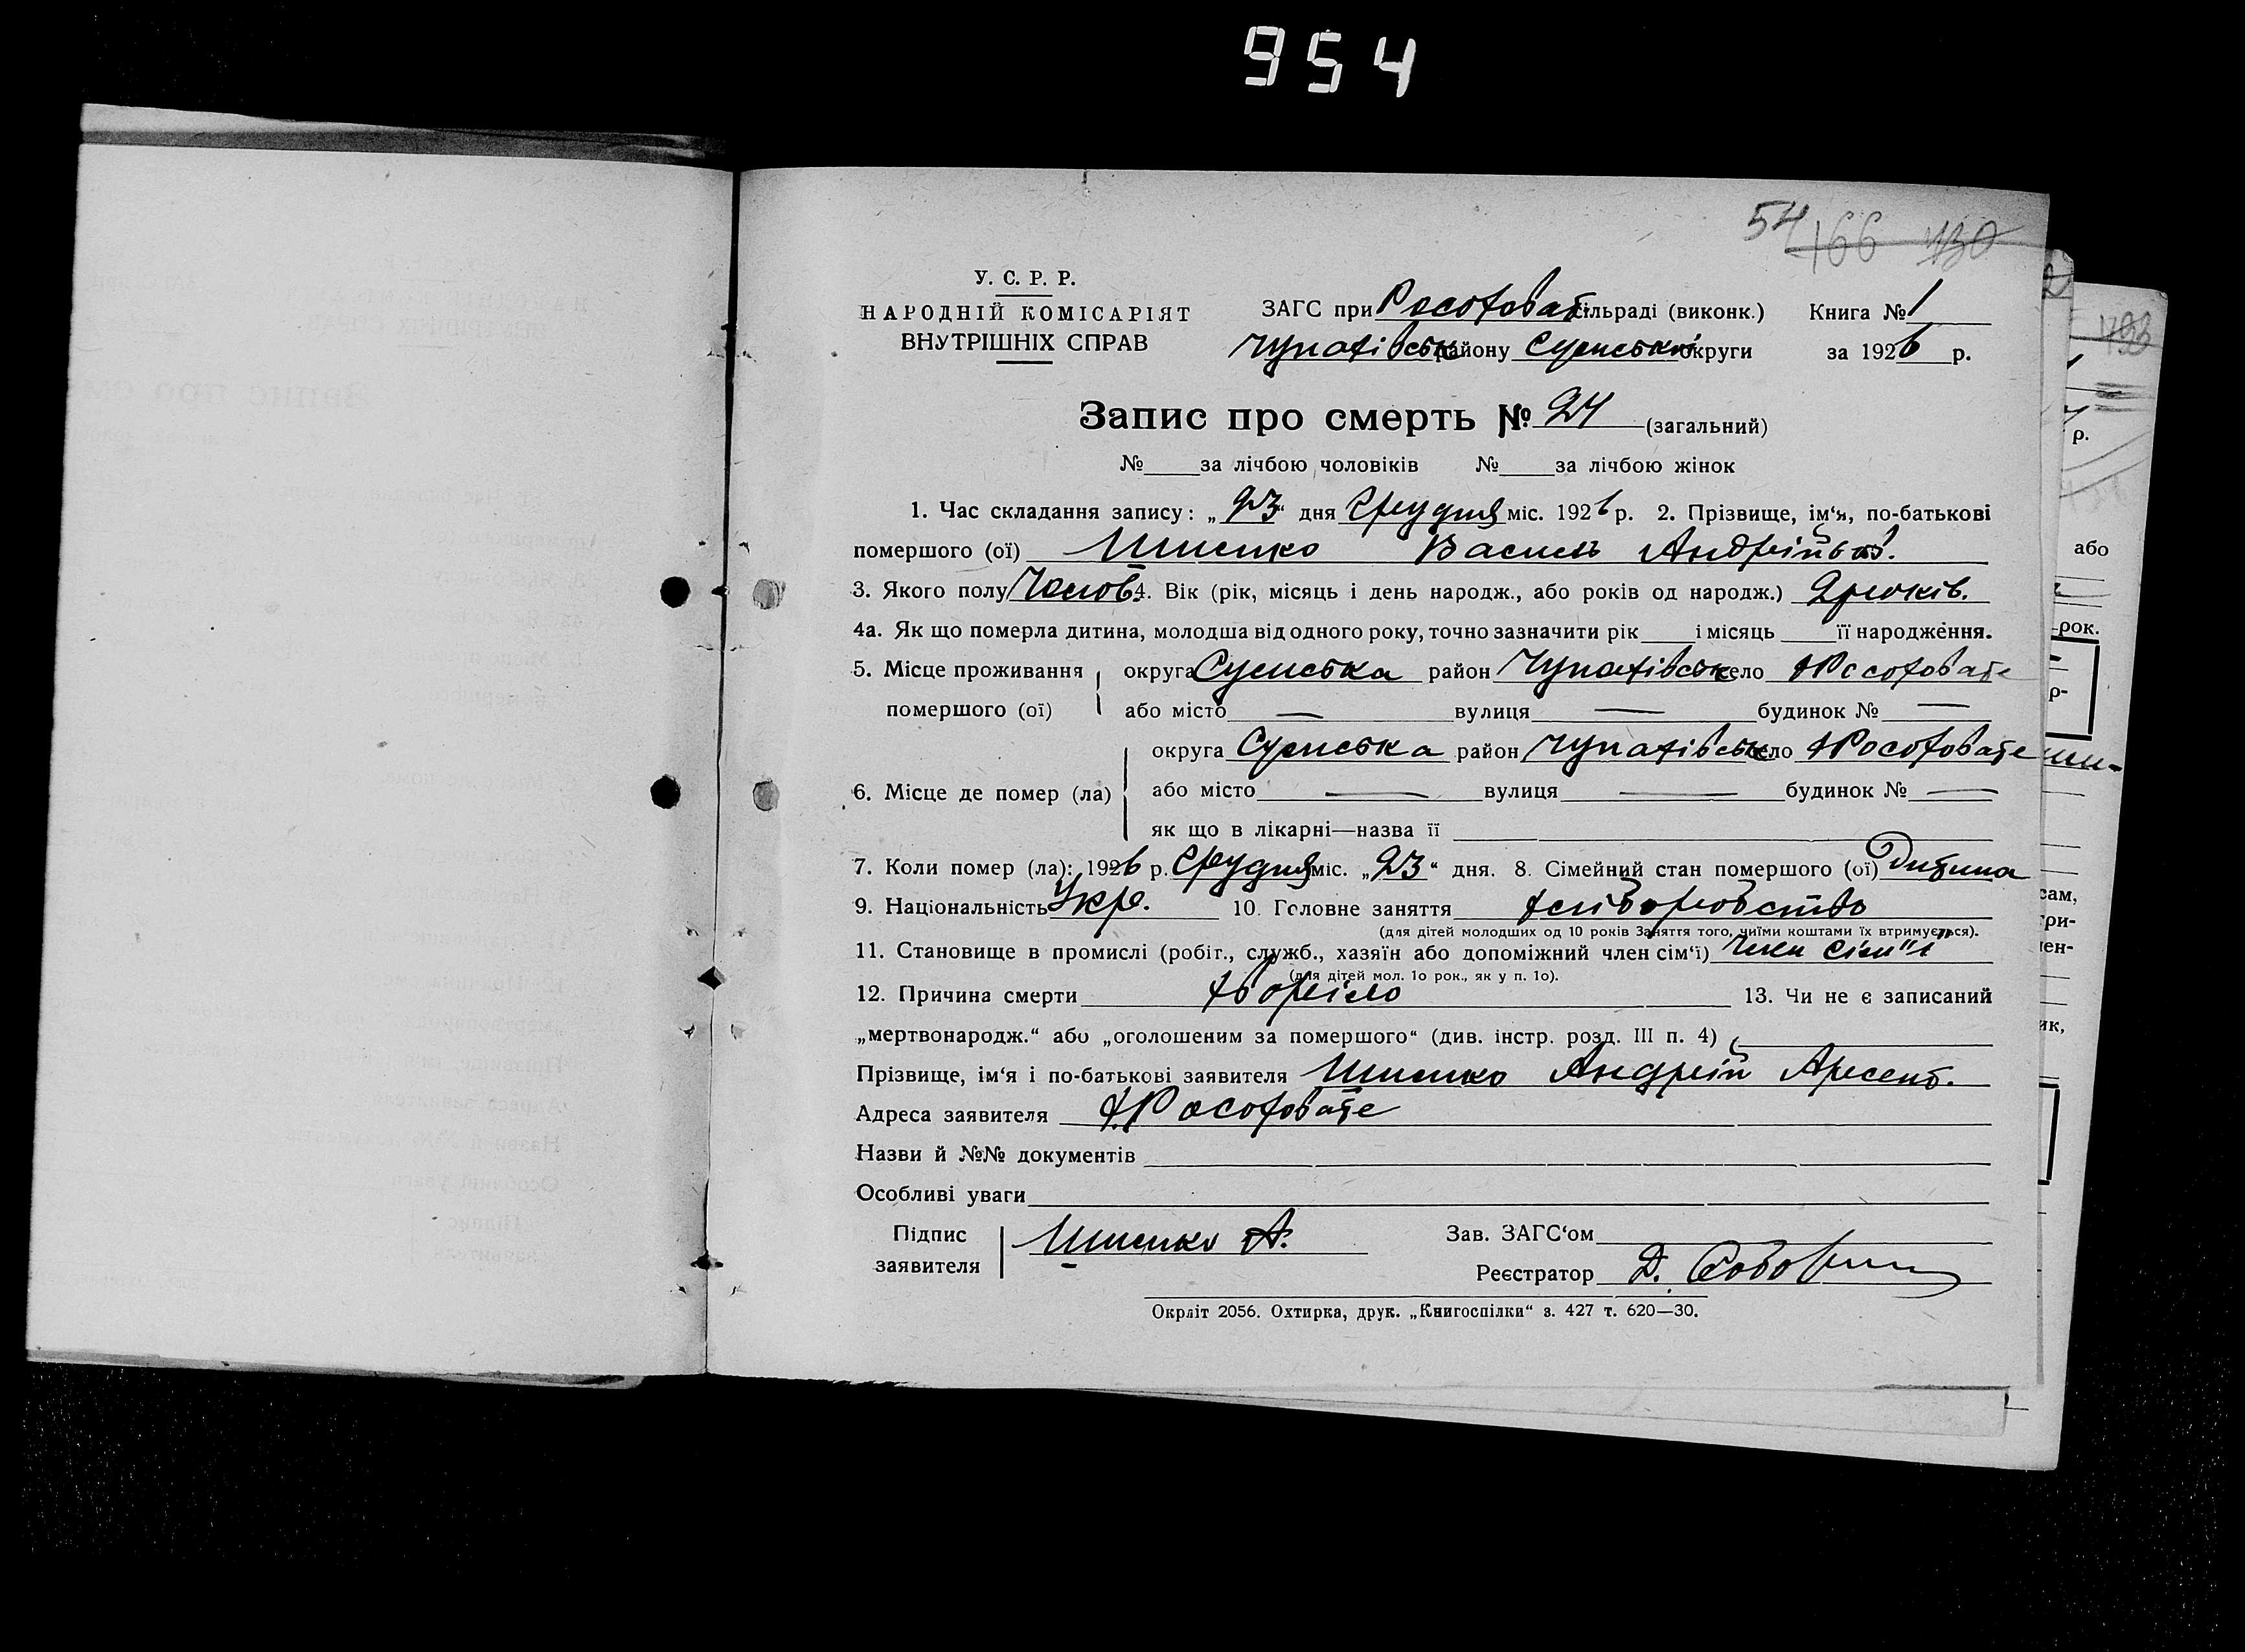 954
54 166 130
У. С. Р. Р.
НАРОДНІЙ КОМІСАРІЯТ
ВНУТРІШНІХ СПРАВ
ЗАГС при Росоховат. сільраді (виконк.) Книга № 1
Чупахівськ району Сумської округи за 1926 р.
Запис про смерть № 24 (загальний)
№ за лічбою чоловіків № за лічбою жінок
1. Час складання запису: „23“ дня Грудня міс. 1926 р. 2. Прізвище, ім‘я, по-батькові
помершого (ої) Василь Андрійов.
3. Якого полу Чолов. 4. Вік (рік, місяць і день народж., або років од народж.) 2 рочків.
4а. Як що померла дитина, молодша від одного року, точно зазначити рік і місяць її народження.
5. Місце проживання округа Сумська район Чупахівськ село Росоховате
помершого (ої) або місто — вулиця — будинок № —
округа Сумська район Чупахівськ село Росоховате
6. Місце де помер (ла) або місто — вулиця — будинок № —
як що в лікарні—назва її
7. Коли помер (ла): 1926 р. Грудня міс. „23“ дня. 8. Сімейний стан помершого (ої) Дитина
9. Національність Укр. 10. Головне заняття хліборобство
(для дітей молодших од 10 років Заняття того, чиїми коштами їх втримується).
11. Становище в промислі (робіт., служб., хазяїн або допоміжний член сім‘ї) член сім"ї
(для дітей мол. 1о рок., як у п. 1о).
12. Причина смерти хворіло 13. Чи не є записаний
„мертвонародж.“ або „оголошеним за помершого“ (див. інстр. розд. III п. 4)
Прізвище, ім‘я і по-батькові заявителя Андрій Арсент.
Адреса заявителя х. Росоховате
Назви й №№ документів
Особливі уваги
Підпис
заявителя А. Зав. ЗАГС‘ом
Реєстратор Д.
Окрліт 2056. Охтирка, друк. „Книгоспілки“ з. 427 т. 620—30.